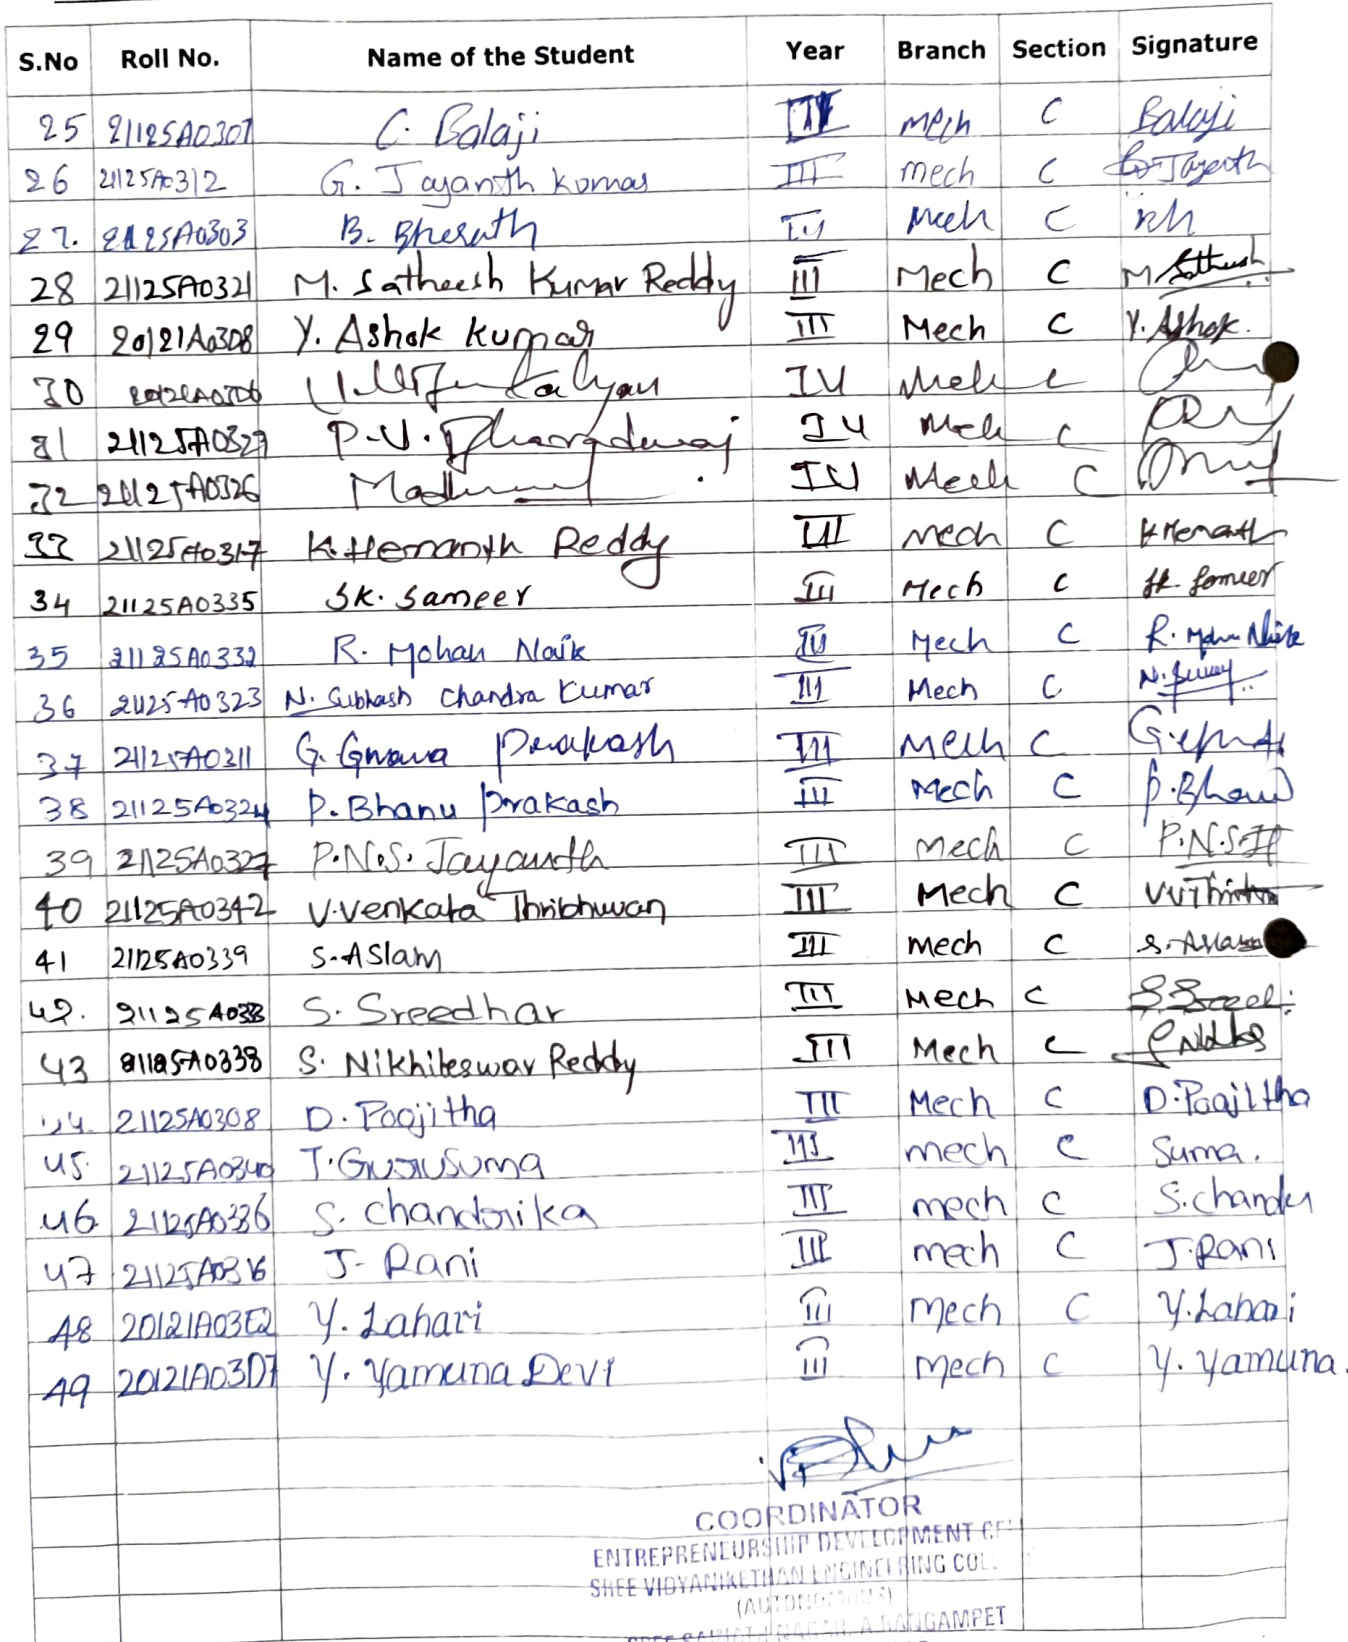 S.No Roll No. Name of the Student Year Branch Section Signature
25 21125A0307 C. Balaji Mech C Balaji
26 21125A0312 G. Jayanth Kumar III Mech C G. Jayanth
27. 21125A0303 B. Bharath IV Mech C
28 21125A0321 M. Satheesh Kumar Reddy III Mech C M. Satheesh
29 20121A03D8 Y. Ashok Kumar III Mech C Y. Ashok.
30 Kalyan IV Mech C
31 P.V. Bharadwaj IV Mech C
32 21125A0326 IV Mech C
33 21125A0317 K. Hemanth Reddy III Mech C K Hemanth
34 21125A0335 SK. Sameer III Mech C SK. Sameer
35 21125A0332 R. Mohan Naik IV Mech C R. Mohan Naik
36 21125A0323 N. Subhash Chandra Kumar III Mech C
37 21125A0311 G. Gnana Prakash III Mech C
38 21125A0324 P. Bhanu Prakash III Mech C P. Bhanu
39 21125A0327 P.N.S. Jayanth III Mech C P.N.S.
40 21125A0342 V.Venkata Thribhuvan III Mech C
41 21125A0339 S. Aslam III Mech C S. Aslam
42. S. Sreedhar III Mech C
43 21125A0338 S. Nikhileswar Reddy III Mech C
44. 21125A0308 D. Poojitha III Mech C D. Poojitha
45. 21125A0340 T. Gurusuma III mech C Suma.
46 21125A0336 S. Chandrika III mech C S. Chandu
47 21125A0316 J. Rani III mech C J. Rani
48 20121A03E2 Y. Lahari III Mech C Y. Lahari
49 20121A03D7 Y. Yamuna Devi III Mech C Y. Yamuna.
COORDINATOR
ENTREPRENEURSHIP DEVELOPMENT CELL
SREE VIDYANIKETHAN ENGINEERING COL
(AUTONOMOUS)
NAGAR, A. RANGAMPET